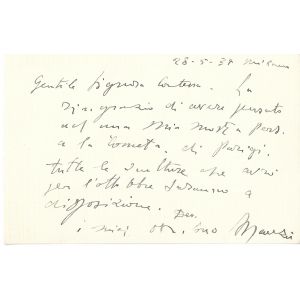 28-5-37 Milano
Gentile Signora Contessa. La
ringrazio di avere pensato
ad una mia mostra pers.
a la Cometa. di Parigi.
tutte le sculture che avrò
per l'ottobre saranno a
disposizione. Dev.
i miei